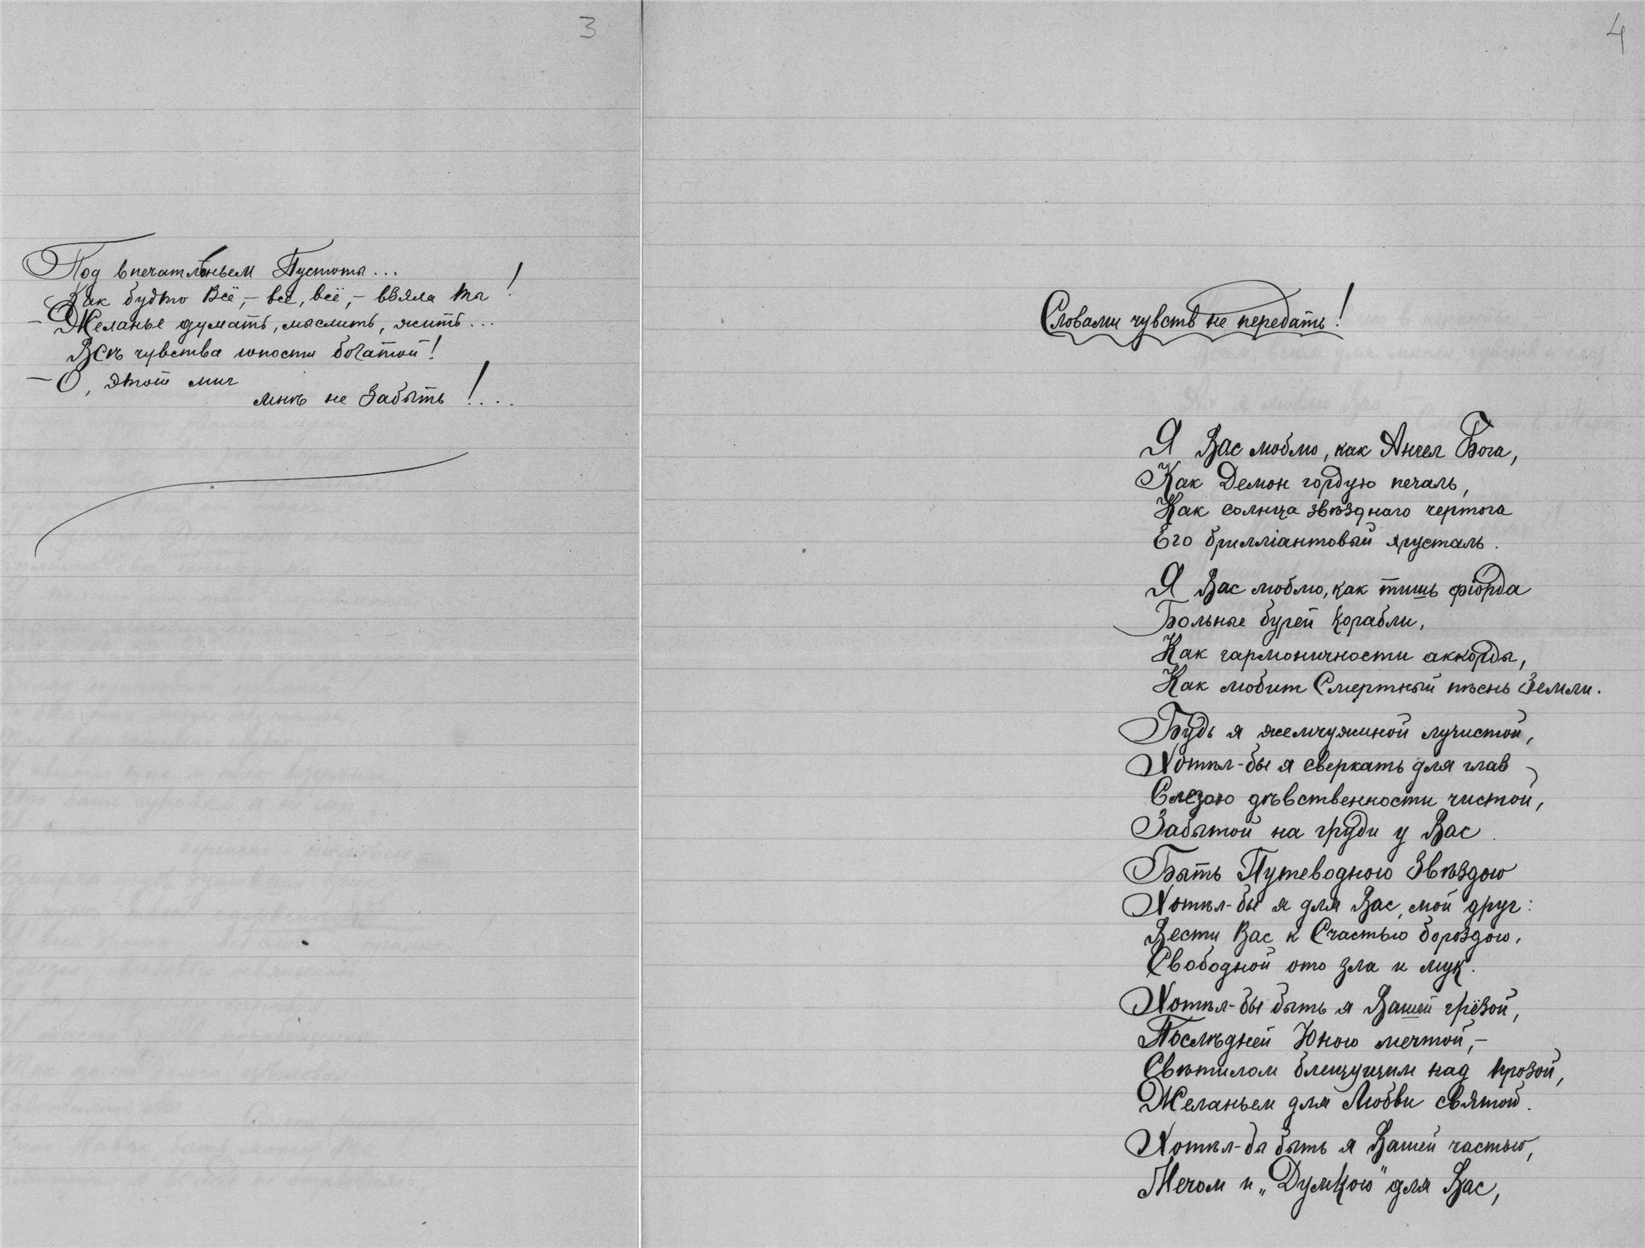 3
Под впечатлѣньем Пустоты...
Как будто Всё,- всё, всё,- взяла ты!
- Желанье думать, мыслить, жить...
Всѣ чувства юности богатой!
- О, этот миг
мнѣ не забыть!...
4
Словами чувств не передать!
Я Вас люблю, как Ангел Бога,
Как Демон гордую печаль,
Как солнца звѣзднаго чертога
Его брилліантовый хрусталь.
Я Вас люблю, как тишь фіорда
Больные бурей корабли,
Как гармоничности аккорды,
Как любит Смертный пѣснь Земли.
Будь я жемчужиной лучистой,
Хотѣл-бы я сверкать для глаз
Слезою дѣвственности чистой,
Забытой на груди у Вас.
Быть Путеводною Звѣздою
Хотѣл-бы я для Вас, мой друг:
Вести Вас к Счастью бороздою,
Свободной ото зла и мук.
Хотѣл-бы быть я Вашей грёзой,
Послѣдней Юною мечтой,-
Свѣтилом блещущим над прозой,
Желаньем для Любви святой.
Хотѣл-бы быть я Вашей частью,
Мечом и „Думкою" для Вас,